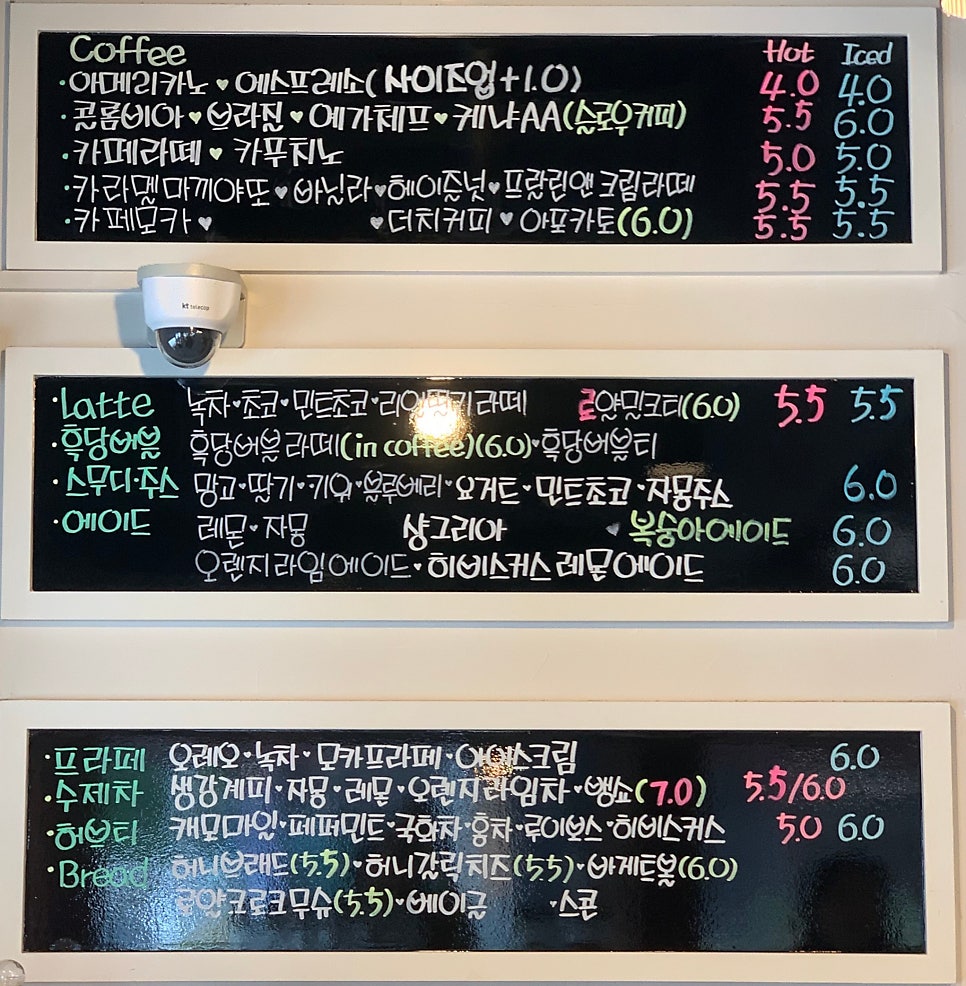 Coffee Hot Iced
·아메리카노 ♥ 에스프레소(사이즈업+1.0) 4.0 4.0
·콜롬비아 ♥ 브라질 ♥ 예가체프 ♥ 케냐AA(슬로우커피) 5.5 6.0
·카페라떼 ♥ 카푸치노 5.0 5.0
·카라멜마끼야또 ♥ 바닐라 ♥ 헤이즐넛 ♥ 프랄린앤크림라떼 5.5 5.5
·카페모카 ♥ ♥ 더치커피 ♥ 아포카토(6.0) 5.5 5.5
kt telecop
·Latte 녹차·초코·민트초코·리얼딸기라떼 로얄밀크티(6.0) 5.5 5.5
·흑당버블 흑당버블라떼(in coffee)(6.0)·흑당버블티
·스무디·주스 망고·딸기·키위·블루베리·요거트·민트초코·자몽주스 6.0
·에이드 레몬·자몽 샹그리아 복숭아에이드 6.0
오렌지라임에이드·히비스커스레몬에이드 6.0
·프라페 오레오·녹차·모카프라페·아이스크림 6.0
·수제차 생강계피·자몽·레몬·오렌지라임차·뱅쇼(7.0) 5.5/6.0
·허브티 캐모마일·페퍼민트·국화차·홍차·루이보스·히비스커스 5.0 6.0
·Bread 허니브래드(5.5)·허니갈릭치즈(5.5)·바게트볼(6.0)
로얄크로크무슈(5.5)·베이글 ·스콘